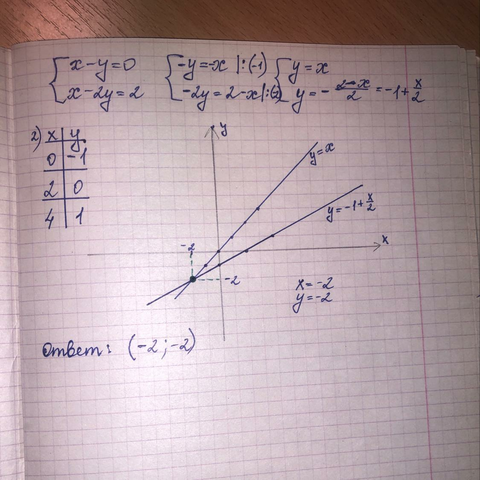 { x-y=0 { -y=-x |:(-1) { y=x
{ x-2y=2 { -2y=2-x |:(-2) { y=-\frac{2-x}{2}=-1+\frac{x}{2}
2) x | y
0 | -1
2 | 0
4 | 1
y
y=x
y=-1+\frac{x}{2}
x
-2
-2
x=-2
y=-2
Ответ: (-2;-2)